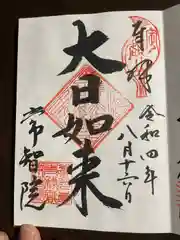 奉拝
令和四年
八月十六日
大日如来
常智院